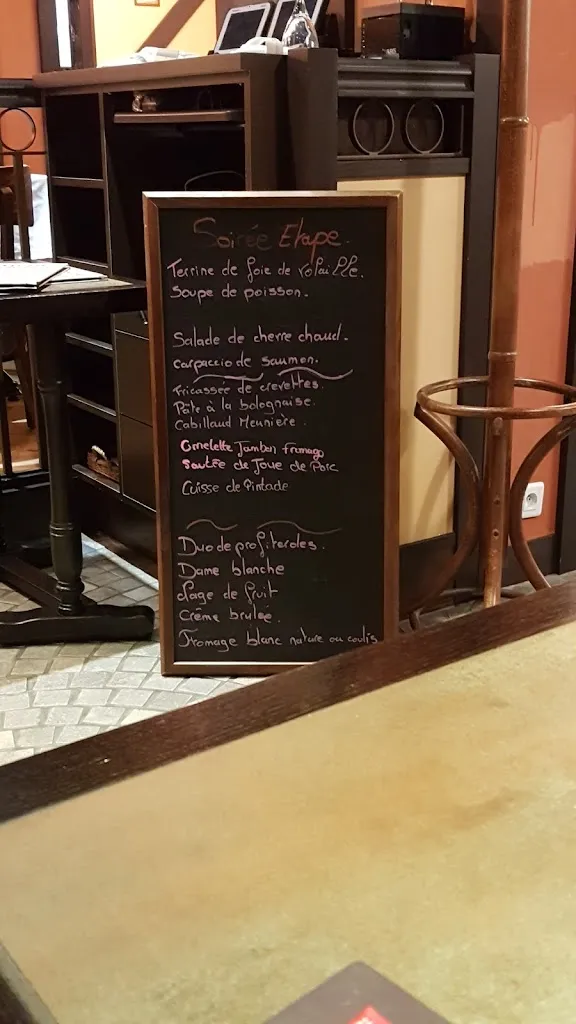 Soirée Etape.
Terrine de foie de volaille.
Soupe de poisson.
Salade de chevre chaud.
carpaccio de saumon.
Fricassée de crevettes.
Pate à la bolognaise.
Cabillaud Meunière.
Omelette Jambon fromage
Sautée de Joue de Porc
Cuisse de Pintade
Duo de profiteroles.
Dame blanche
de fruit
Crême brulée.
Fromage blanc nature ou coulis